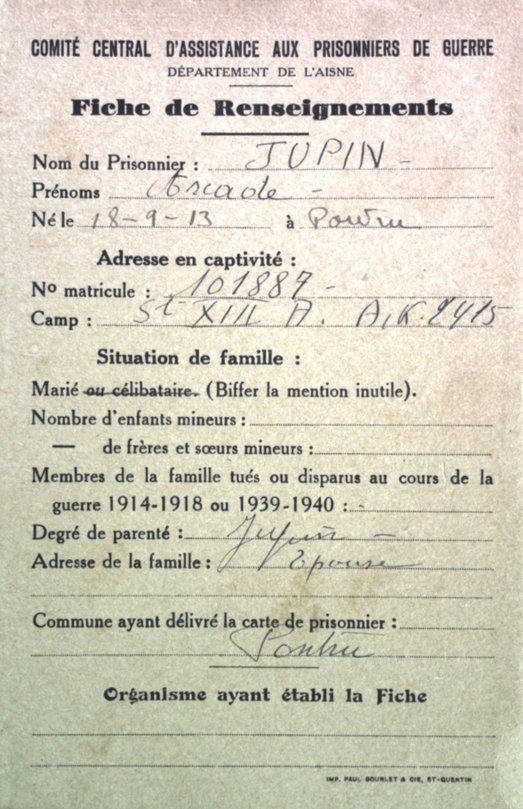 COMITÉ CENTRAL D'ASSISTANCE AUX PRISONNIERS DE GUERRE
DÉPARTEMENT DE L'AISNE
Fiche de Renseignements
Nom du Prisonnier : JUPIN -
Prénoms Arcade -
Né le 18-9-13 à
Adresse en captivité :
No matricule : 101887 -
Camp : St XIII A. A.K. 2415
Situation de famille :
Marié ou célibataire. (Biffer la mention inutile).
Nombre d'enfants mineurs :
— de frères et sœurs mineurs :
Membres de la famille tués ou disparus au cours de la
guerre 1914-1918 ou 1939-1940 : -
Degré de parenté : Jupin -
Adresse de la famille : Epouse
Commune ayant délivré la carte de prisonnier :
Pontru
Organisme ayant établi la Fiche
IMP. PAUL BOURLET & CIE, ST-QUENTIN